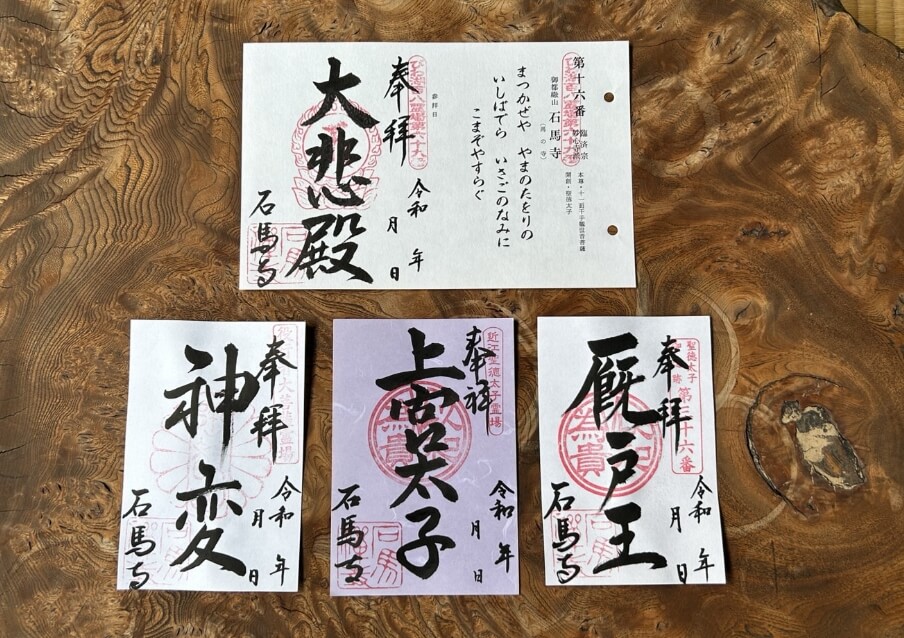 第十六番
臨済宗
妙心寺派
御都繖山 石馬寺
(馬の寺)
本尊・十一面千手観世音菩薩
開創・聖徳太子
まつかぜや やまのたをりの
いしばでら いさごのなみに
こまぞやすらぐ
参拝日
びわ湖百八霊場第六十九番
奉拝
令和 年
月 日
大悲殿
石馬寺
奉拝
令和 年
月 日
神変
石馬寺
近江聖徳太子霊場
奉拝
令和 年
月 日
上宮太子
石馬寺
聖徳太子
第三十六番
奉拝
令和 年
月 日
厩戸王
石馬寺